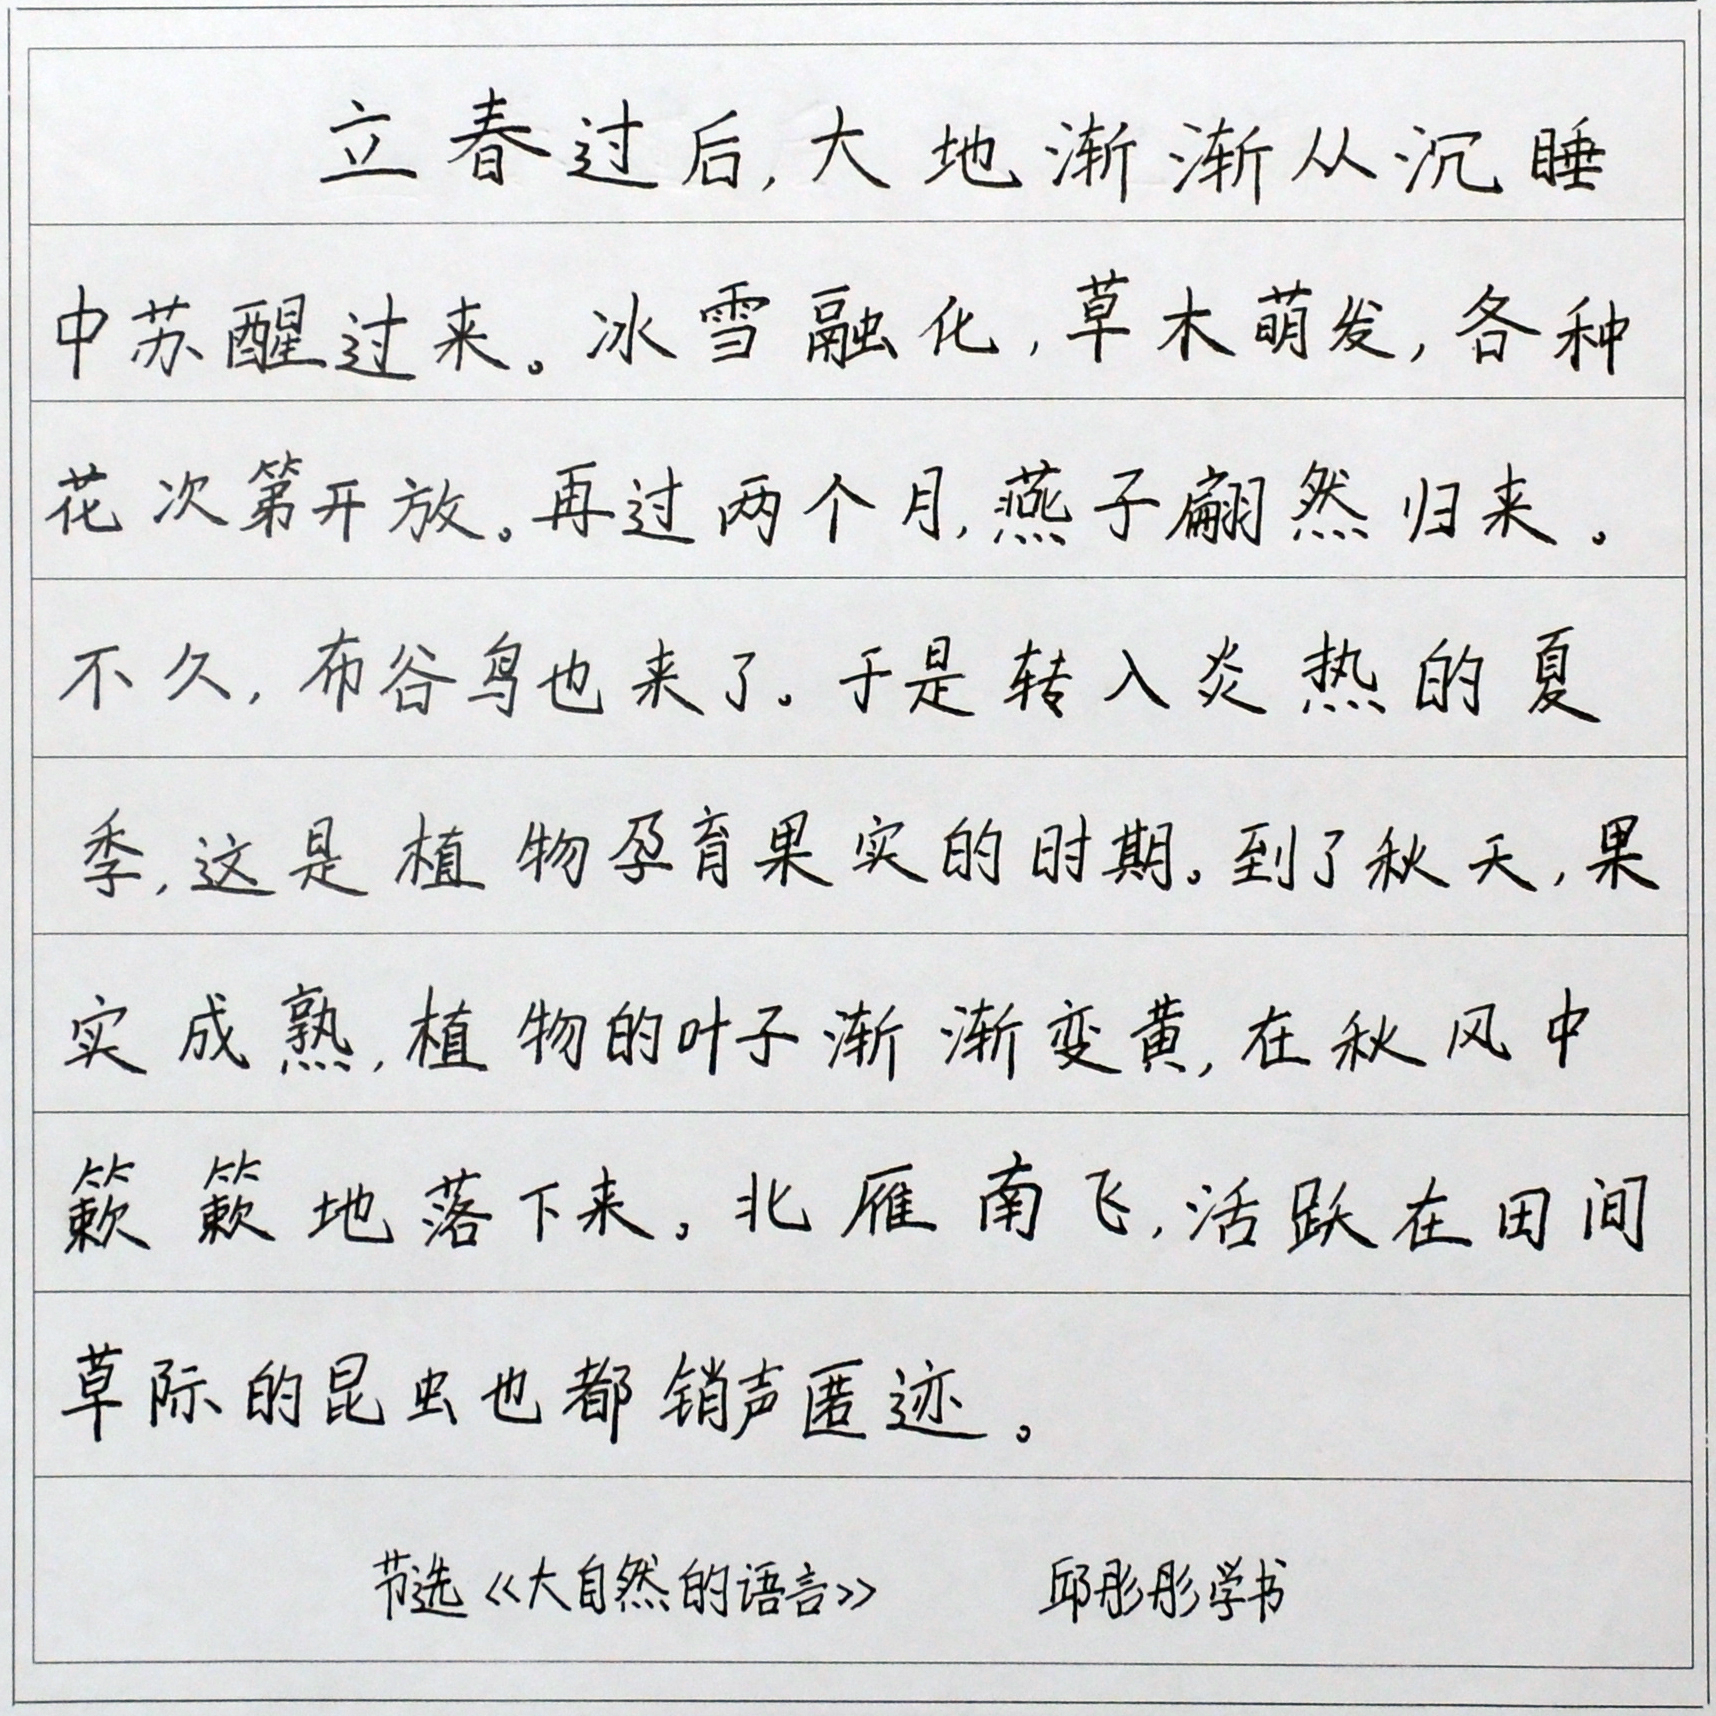 立春过后,大地渐渐从沉睡
中苏醒过来。冰雪融化,草木萌发,各种
花次第开放。再过两个月,燕子翩然归来。
不久,布谷鸟也来了。于是转入炎热的夏
季,这是植物孕育果实的时期。到了秋天,果
实成熟,植物的叶子渐渐变黄,在秋风中
簌簌地落下来。北雁南飞,活跃在田间
草际的昆虫也都销声匿迹。
节选《大自然的语言》 邱彤彤学书